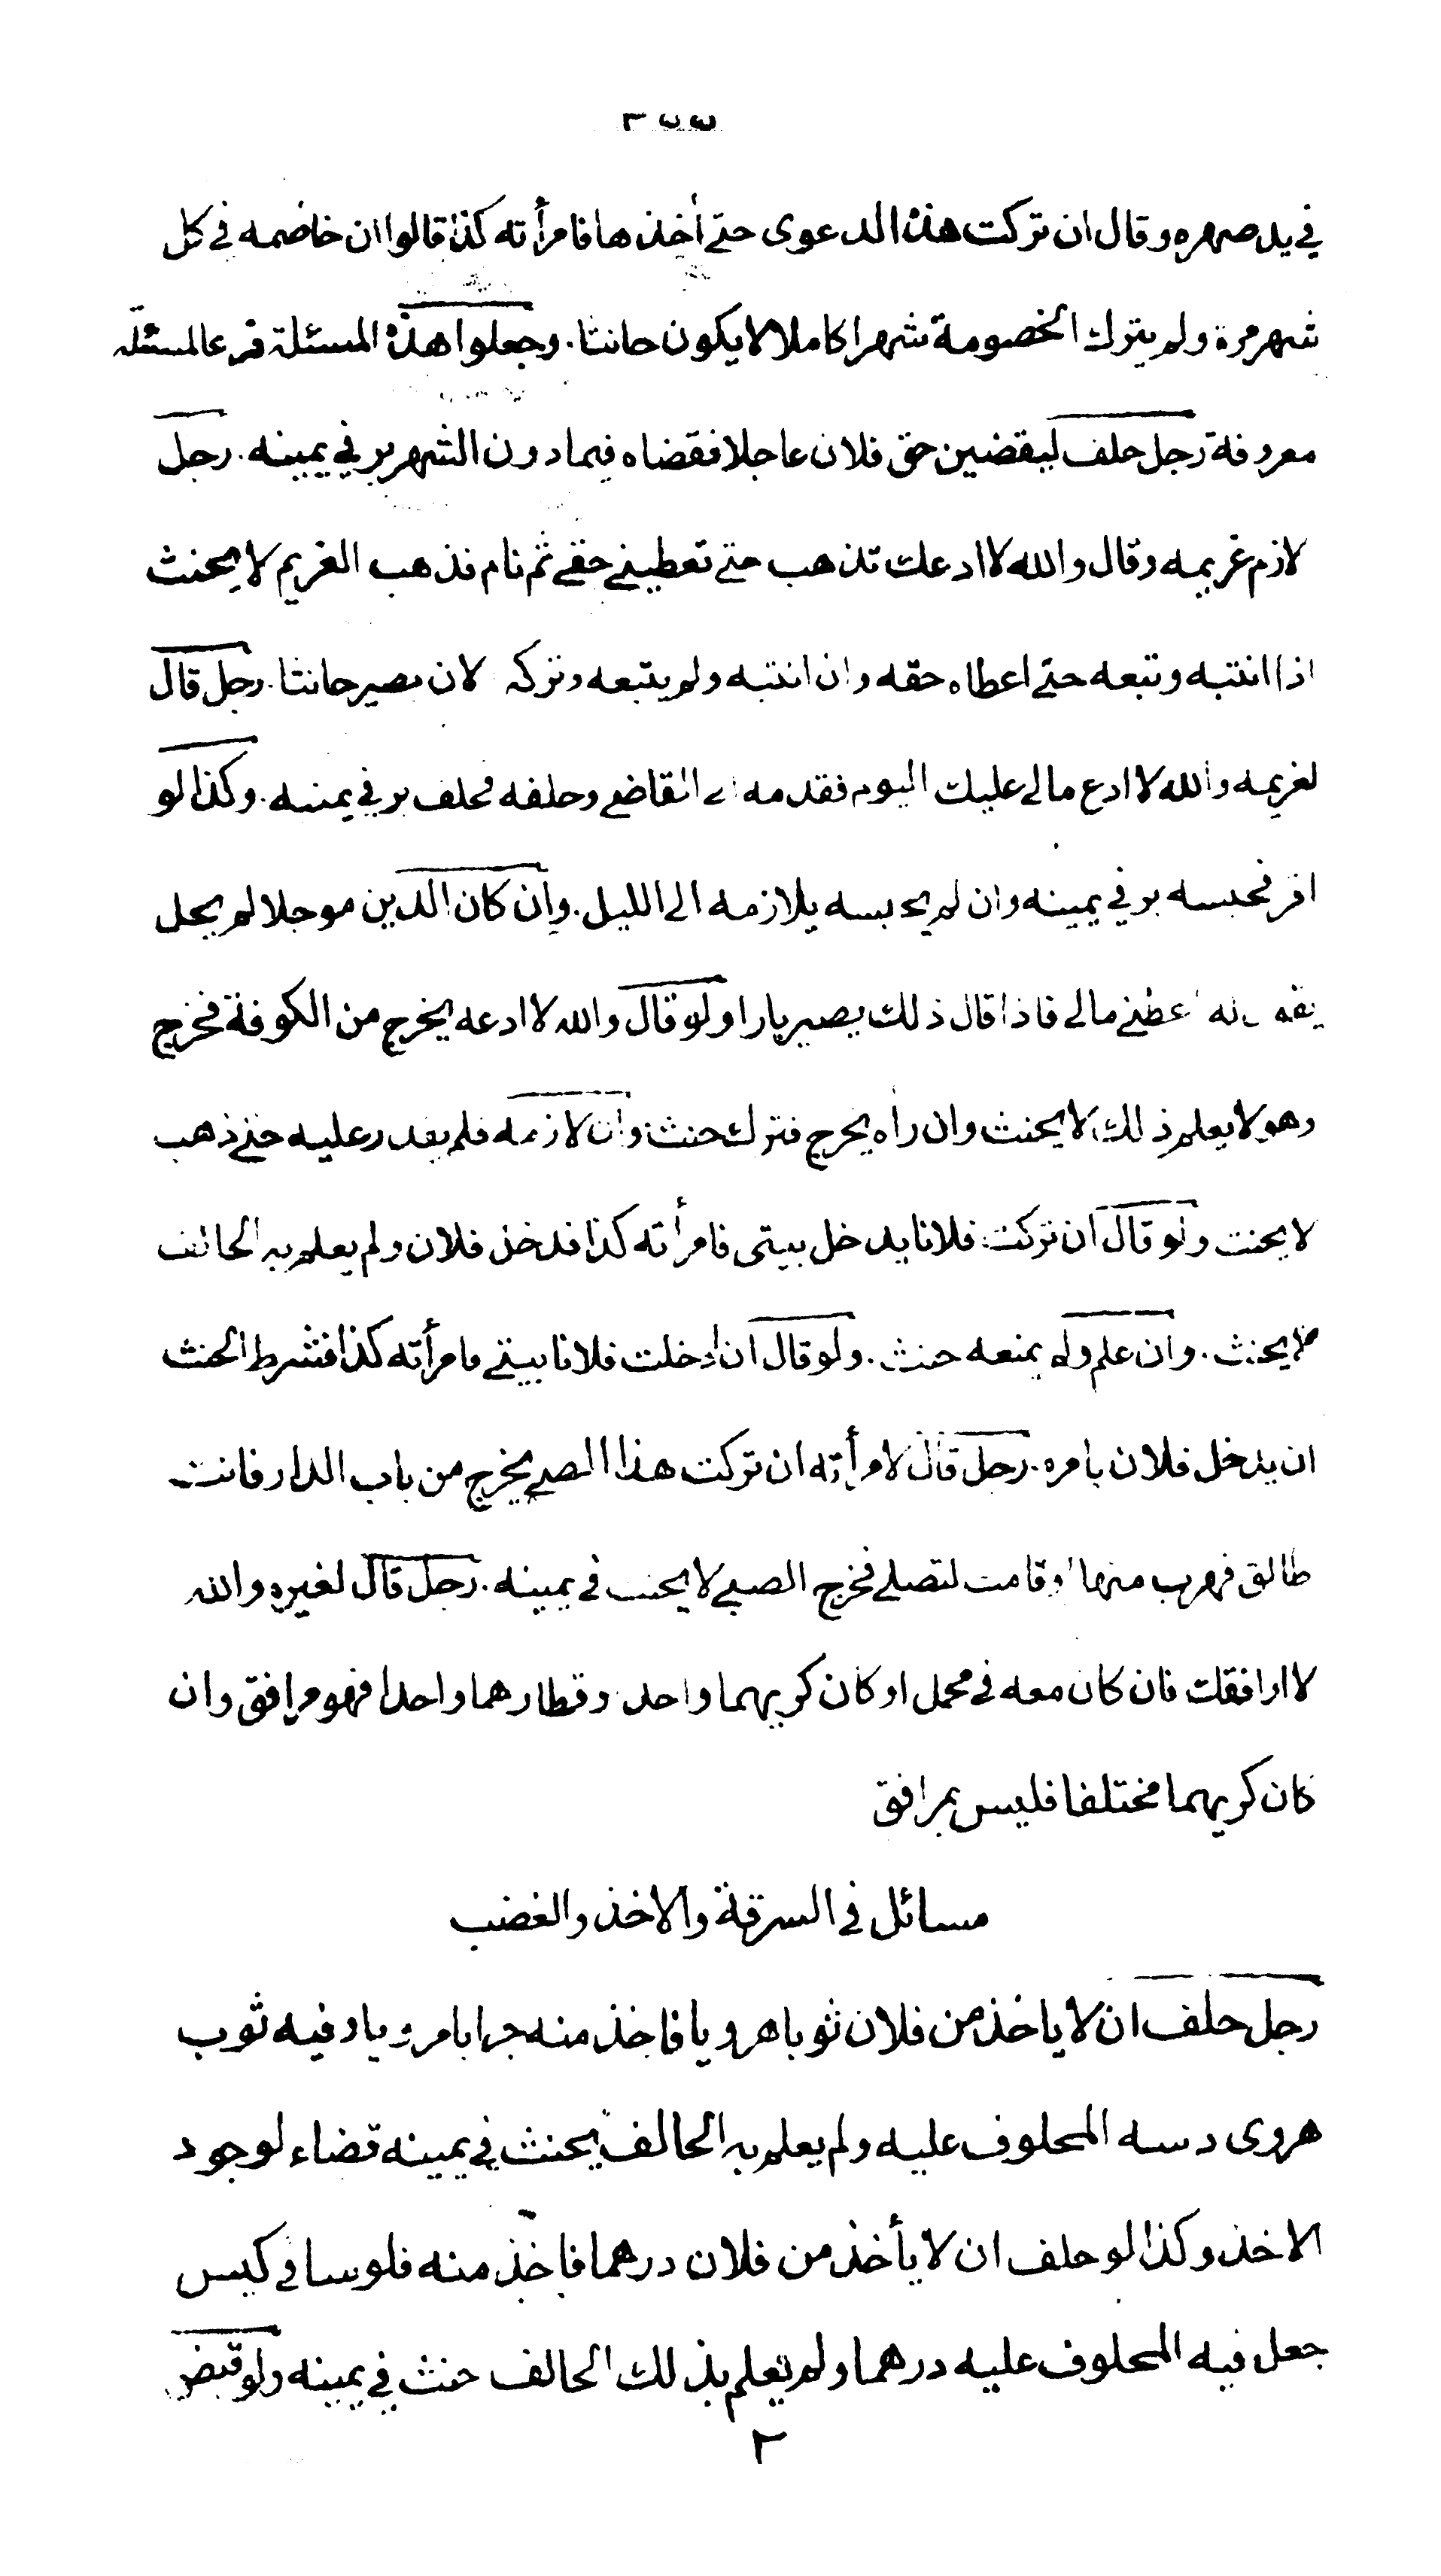 في يد صهره وقال ان تركت هذه الدعوى حتى أخذها فامرأته كذا قالوا ان خاصمه في كل
شهر مرة ولم يترك الخصومة شهرا كاملا لا يكون حانثا . وجعلوا هذه المسئلة فرعا لمسئلة
معروفة رجل حلف ليقضين حق فلان عاجلا فقضاه فيما دون الشهر بر في يمينه . رجل
لازم غريمه وقال والله لا ادعك تذهب حتى تعطيني حقي ثم نام فذهب الغريم لا يحنث
اذا انتبه وتبعه حتى اعطاه حقه وان انتبه ولم يتبعه وتركه لان يصير حانثا . رجل قال
لغريمه والله لا ادع مالي عليك اليوم فقدمه الى القاضي وحلفه فحلف بر في يمينه . وكذا لو
اقر فحبسه بر في يمينه وان لم يحبسه يلازمه الى الليل . وان كان الدين موجلا لم يحل
يقول له اعطني مالي فاذا قال ذلك يصير بارا ولو قال والله لا ادعه يخرج من الكوفة فخرج
وهو لا يعلم ذلك لا يحنث وان رأه يخرج فترك حنث وان لازمه فلم يقدر عليه حتى ذهب
لا يحنث ولو قال ان تركت فلانا يدخل بيتى فامرأته كذا فدخل فلان ولم يعلم به الحالف
لا يحنث . وان علم ولم يمنعه حنث . ولو قال ان ادخلت فلانا بيتي فامرأته كذا فشرط الحنث
ان يدخل فلان بامره . رجل قال لامرأته ان تركت هذا الصبي يخرج من باب الدار فانت
طالق فهرب منها او قامت لتصلي فخرج الصبي لا يحنث في يمينه . رجل قال لغيره والله
لا ارافقك فان كان معه في محمل او كان كريهما واحد وقطارهما واحدا فهو مرافق وان
كان كريهما مختلفا فليس بمرافق
مسائل في السرقة والاخذ والغضب
رجل حلف ان لا ياخذ من فلان ثوبا هرويا فاخذ منه جرابا مرويا وفيه ثوب
هروى دسه المحلوف عليه ولم يعلم به الحالف يحنث في يمينه قضاء لوجود
الاخذ وكذا لو حلف ان لا يأخذ من فلان درهما فاخذ منه فلوسا في كيس
جعل فيه المحلوف عليه درهما ولم يعلم بذلك الحالف حنث في يمينه ولو قبض
٢